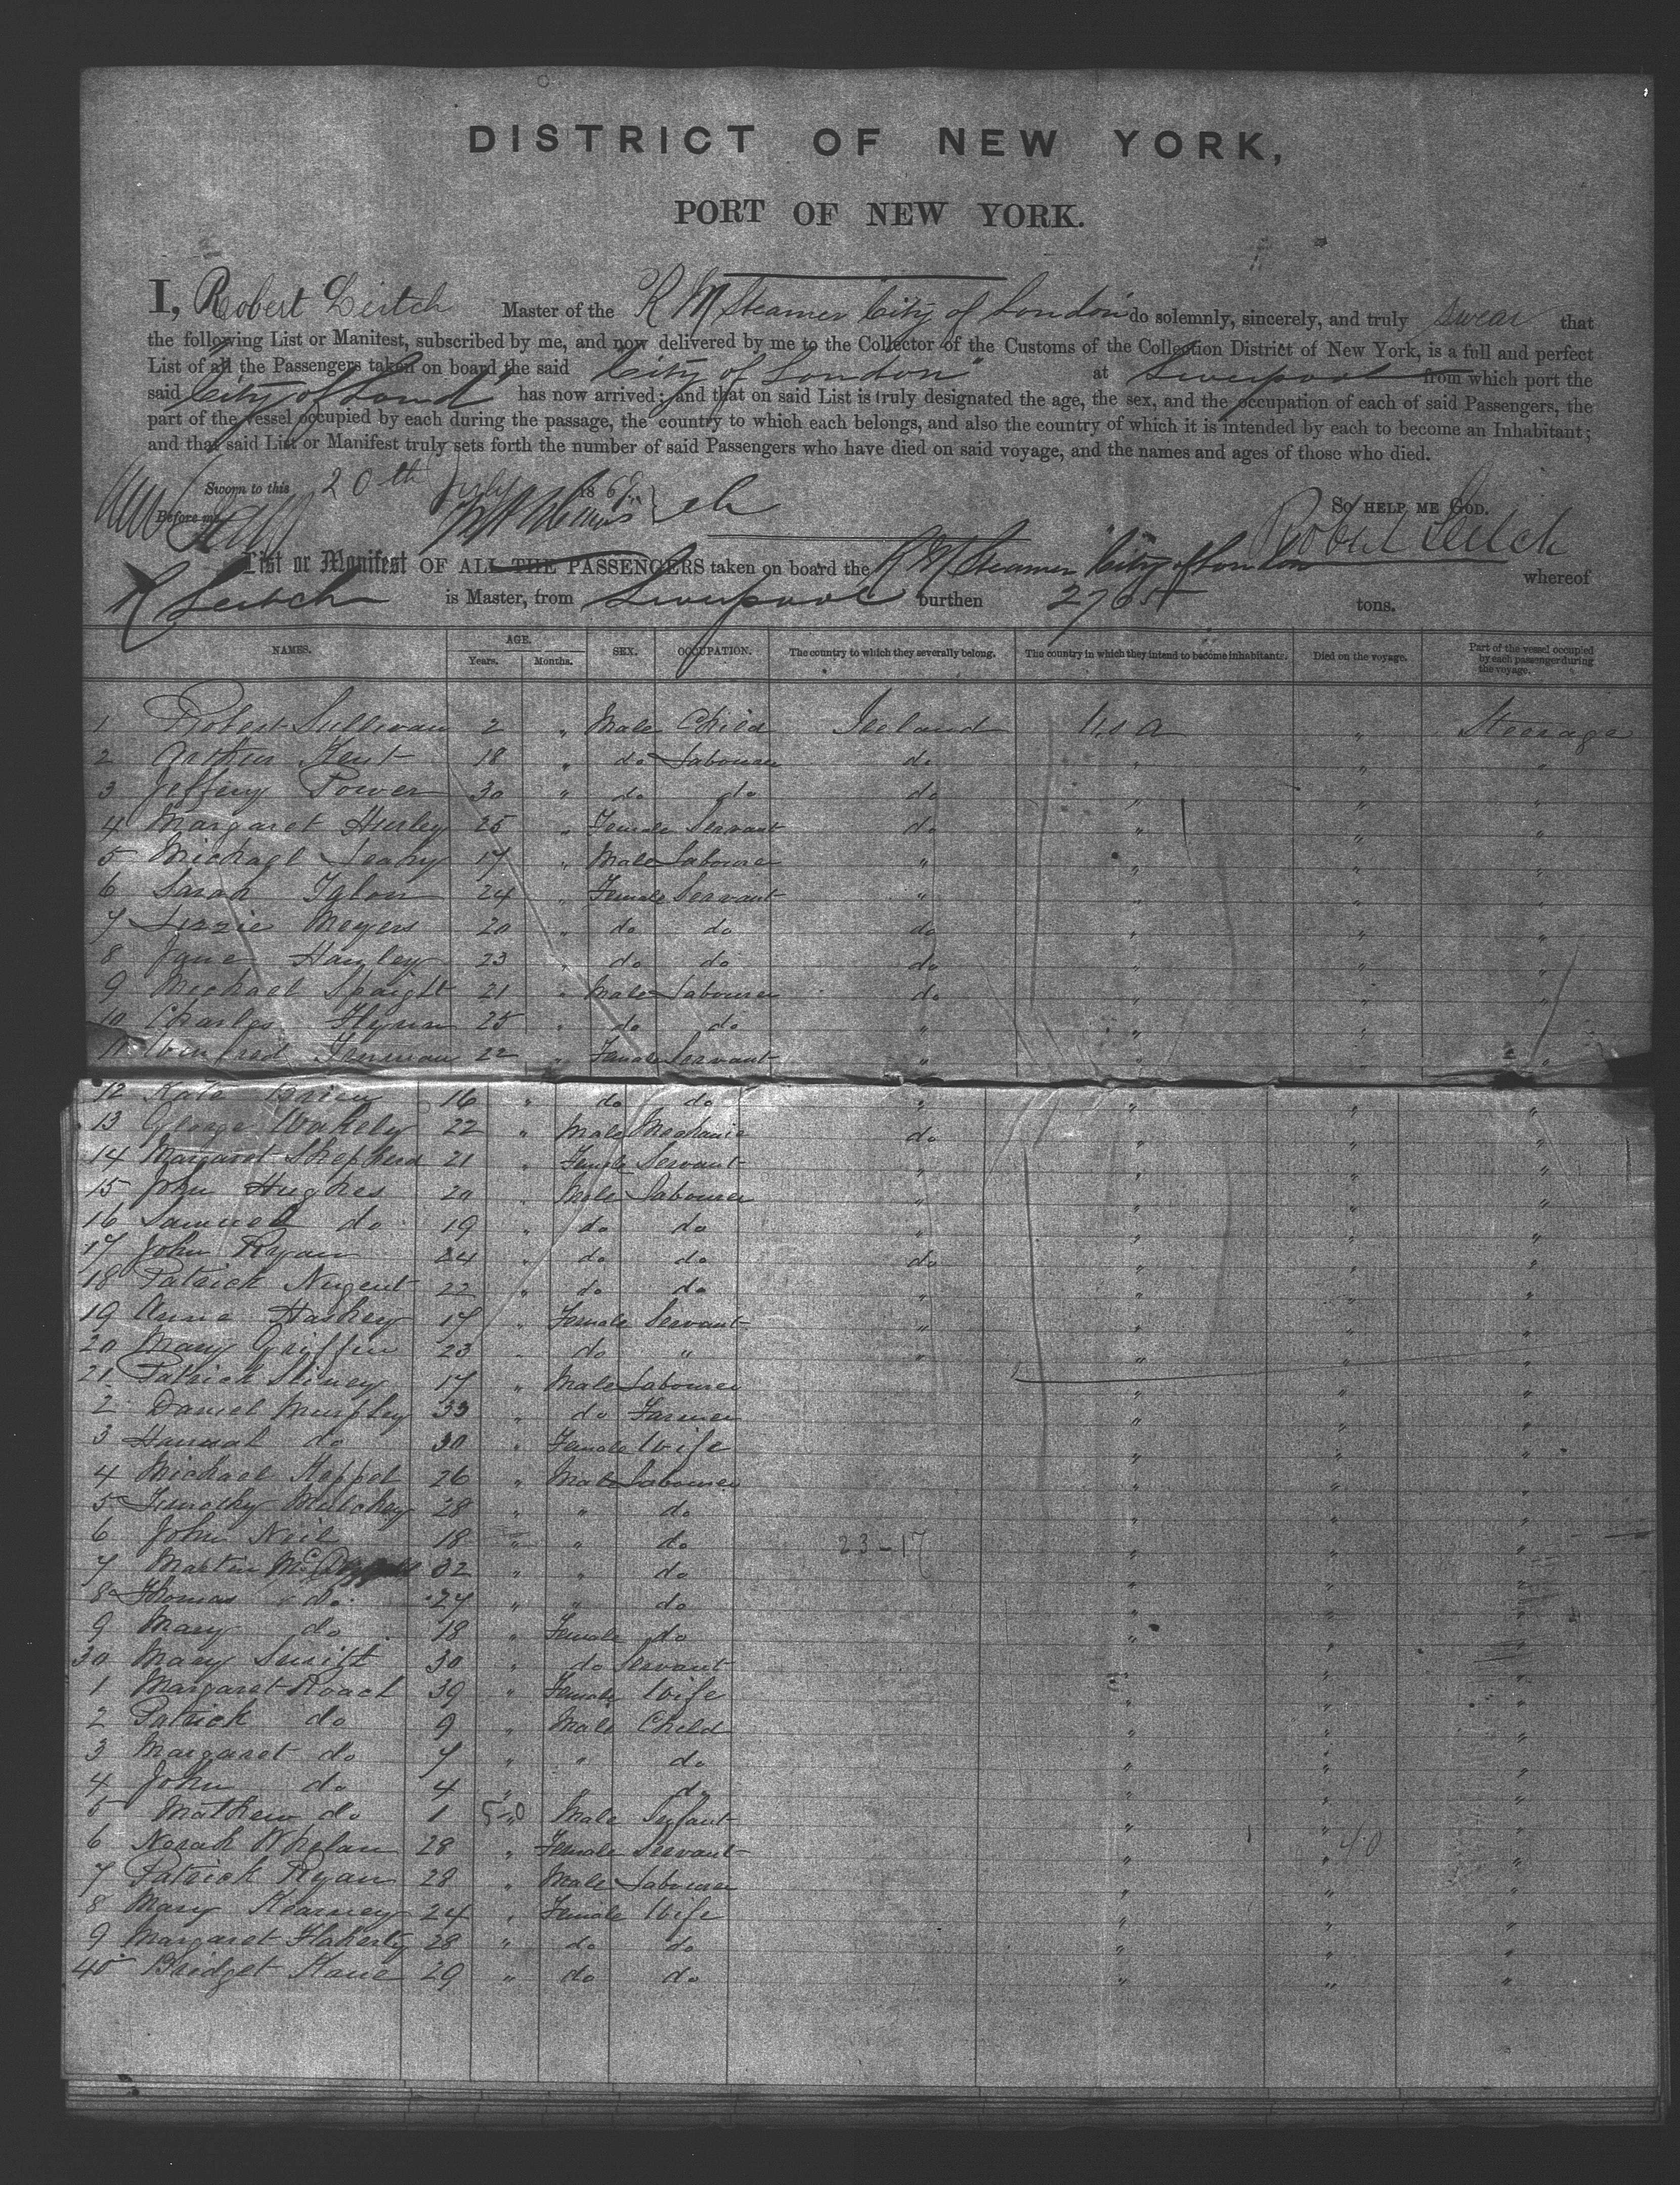 DISTRICT OF NEW YORK,
PORT OF NEW YORK.
I, Robert Leitch Master of the R M Steamer City of London do solemnly, sincerely, and truly swear that
the following List or Manifest, subscribed by me, and now delivered by me to the Collector of the Customs of the Collection District of New York, is a full and perfect
List of all the Passengers taken on board the said "City of London" at Liverpool from which port the
said City of Lond has now arrived; and that on said List is truly designated the age, the sex, and the occupation of each of said Passengers, the
part of the vessel occupied by each during the passage, the country to which each belongs, and also the country of which it is intended by each to become an Inhabitant;
and that said List or Manifest truly sets forth the number of said Passengers who have died on said voyage, and the names and ages of those who died.
Sworn to this 20th July 186
Before me SO HELP ME GOD.
Robert Leitch
List or Manifest OF ALL THE PASSENGERS taken on board the R M Steamer "City of London whereof
R Leitch is Master, from Liverpool burthen 2765 tons.
NAMES. AGE. Years. Months. SEX. OCCUPATION. The country to which they severally belong. The country in which they intend to become inhabitants. Died on the voyage. Part of the vessel occupied by each passenger during the voyage.
1 Robert Sullivan 2 " Male Child Ireland U.S.A " Steerage
2 Arthur Kent 18 " do Labourer do " " "
3 Jeffery Power 30 " do do do " " "
4 Margaret Hurley 25 " Female Servant do " " "
5 Michael Leahy 17 " Male Labourer " " " "
6 Sarah 24 " Female Servant " " " "
7 Lizzie Meyers 20 " do do do " " "
8 Jane Hanley 23 " do do do " " "
9 Michael Spaight 21 " Male Labourer do " " "
10 Charles Flynn 25 " do do " " " "
11 Winifred 22 " Female Servant " " " "
12 Kate Brien 16 " do do " " " "
13 George Wakely 22 " Male Mechanic do " " "
14 Margaret Shepherd 21 " Female Servant " " " "
15 John Hughes 20 " Male Labourer " " " "
16 Samuel do 19 " do do " " " "
17 John Ryan 24 " do do do " " "
18 Patrick Nugent 22 " do do " " " "
19 Anne 17 " Female Servant " " " "
20 Mary Griffin 23 " do " " " " "
21 Patrick 17 " Male Labourer " " "
2 Daniel Murphy 33 " do Farmer " " "
3 Hannah do 30 " Female Wife " " "
4 Michael Keppel 26 " Male Labourer " " "
5 Timothy Mulchey 28 " " do " " "
6 John Neil 18 " " do 23-17 " " "
7 Martin 32 " " do " " "
8 Thomas do 27 " " do " " "
9 Mary do 18 " Female do " " "
30 Mary 30 " do Servant " " "
1 Margaret Roach 39 " Female Wife " " "
2 Patrick do 9 " Male Child " " "
3 Margaret do 7 " " do " " "
4 John do 4 " " do " " "
5 Mathew do 1 " Male Infant " " "
6 Norah Whelan 28 " Female Servant " " 40 "
7 Patrick Ryan 28 " Male Labourer " " "
8 Mary Kearney 24 " Female Wife " " "
9 Margaret Flaherty 28 " do do " " "
40 Bridget Kane 29 " do do " " "